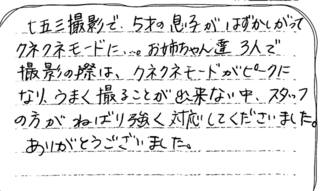 七五三撮影で、5才の息子がはずかしがって
クネクネモードに…。お姉ちゃん達3人で
撮影の際は、クネクネモードがピークに
なり、うまく撮ることが出来ない中、スタッフ
の方がねばり強く対応してくださいました。
ありがとうございました。